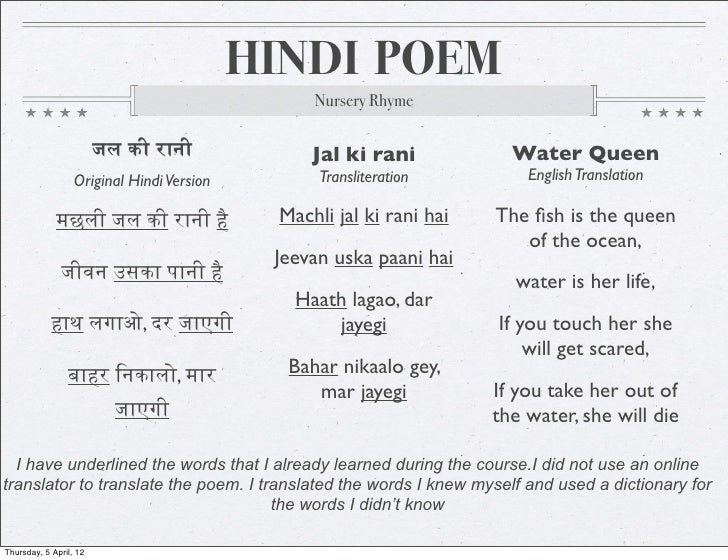 HINDI POEM
Nursery Rhyme
जल की रानी
Original Hindi Version
मछली जल की रानी है
जीवन उसका पानी है
हाथ लगाओ, दर जाएगी
बाहर निकालो, मार
जाएगी
Jal ki rani
Transliteration
Machli jal ki rani hai
Jeevan uska paani hai
Haath lagao, dar
jayegi
Bahar nikaalo gey,
mar jayegi
Water Queen
English Translation
The fish is the queen
of the ocean,
water is her life,
If you touch her she
will get scared,
If you take her out of
the water, she will die
I have underlined the words that I already learned during the course.I did not use an online
translator to translate the poem. I translated the words I knew myself and used a dictionary for
the words I didn't know
Thursday, 5 April, 12